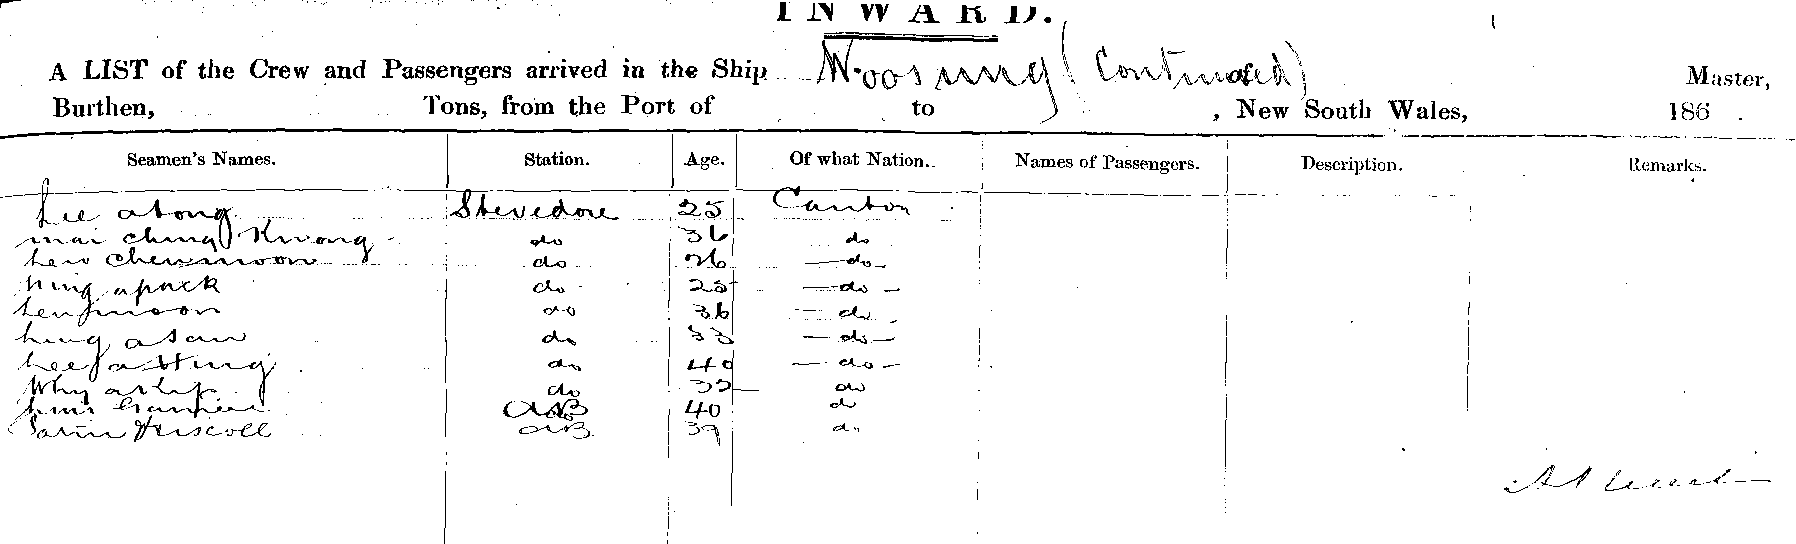 INWARD.
A LIST of the Crew and Passengers arrived in the Ship Woosung (Continued) Master,
Burthen, Tons, from the Port of to , New South Wales, 186 .
Seamen's Names. Station. Age. Of what Nation. Names of Passengers. Description. Remarks.
Lee atong Stevedore 25 Canton
mai ching Kwong do 36 do
do 26 - do -
apack do 25 - do -
do 36 - do -
asau do 33 - do -
Lee do 40 - do -
Why akip do 35 do
AB 40 do
Driscoll AB 39 do